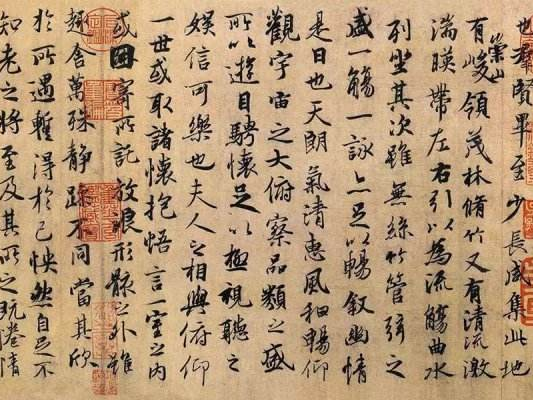 也羣賢畢至少長咸集此地
有崇山峻領茂林脩竹又有清流激
湍暎帶左右引以為流觴曲水
列坐其次雖無絲竹管弦之
盛一觴一詠亦足以暢敘幽情
是日也天朗氣清惠風和暢仰
觀宇宙之大俯察品類之盛
所以遊目騁懷足以極視聽之
娛信可樂也夫人之相與俯仰
一世或取諸懷抱悟言一室之內
或因寄所託放浪形骸之外雖
趣舍萬殊靜躁不同當其欣
於所遇暫得於己怏然自足不
知老之將至及其所之既惓情